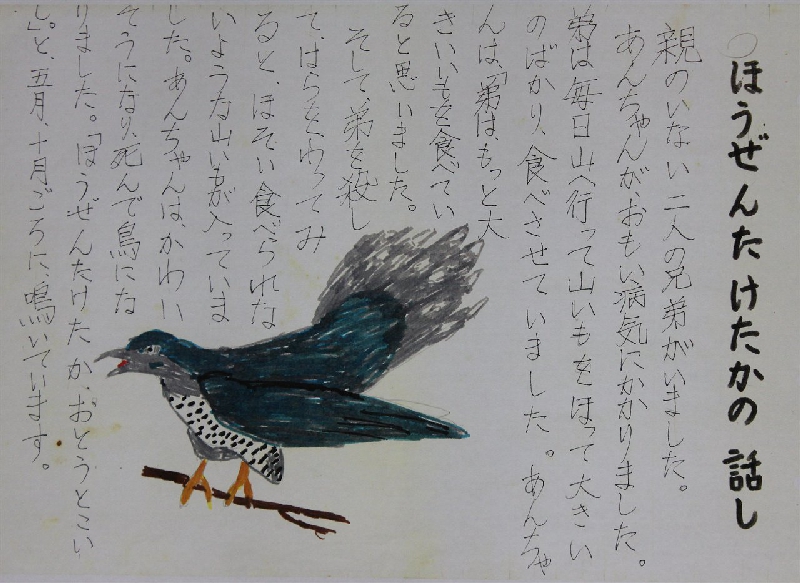 ○ほうぜんたけたかの話し
親のいない二人の兄弟がいました。
あんちゃんがおもい病気にかかりました。
弟は毎日山へ行って山いもをほって大きい
のばかり、食べさせていました。あんちゃ
んは、「弟は、もっと大
きいいもを食べてい
ると思いました。
そして、弟を殺し
て、はらをわってみ
ると、ほそい食べられな
いような山いもが入っていま
した。あんちゃんは、かわい
そうになり、死んで鳥にな
りました。「ほうぜんたけたか。おとうとこい
し」と、五月、十月ごろに鳴いています。